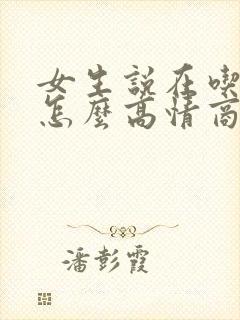 女生說在喫
怎麼高情商
潘彭霞